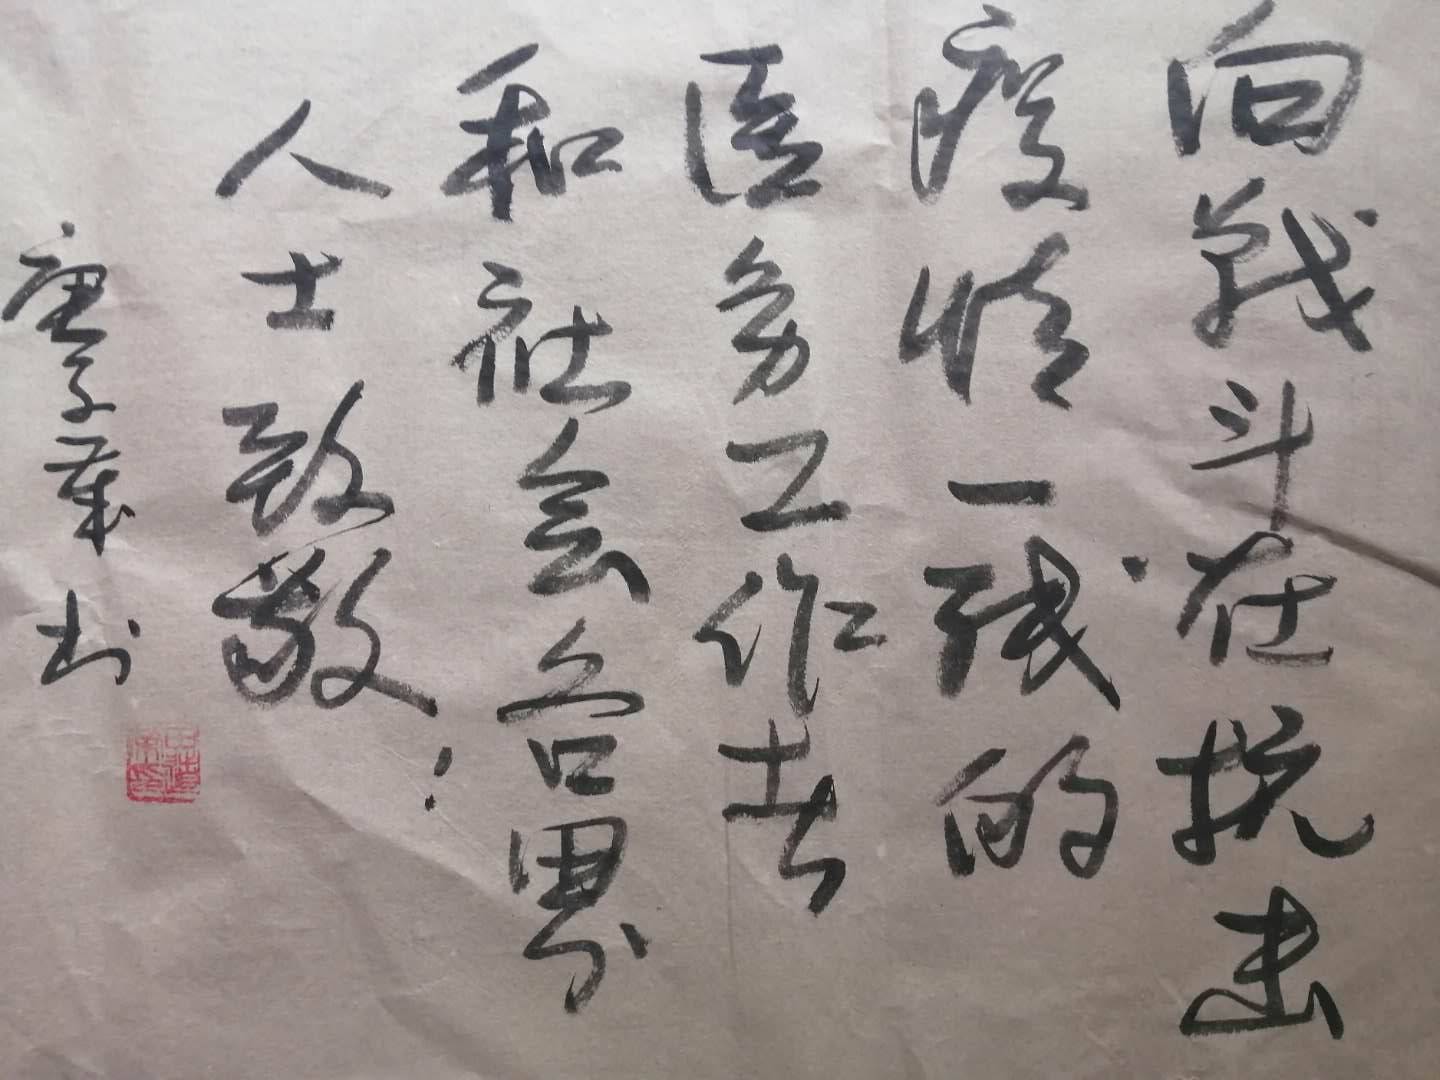 向战斗在抗击
疫情一线的
医务工作者
和社会各界
人士致敬！
庚子 书